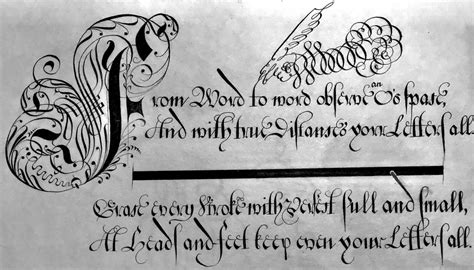 From Word to word observe an O's space,
And with true Distances your Letters all
Grase every Stroke with Perfect full and small,
At Heads and feet keep even your Letters all.